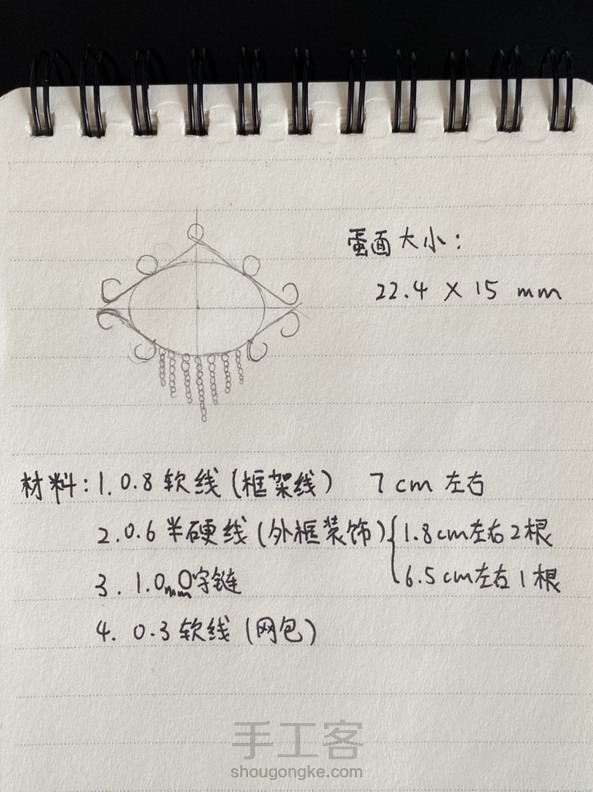 蛋面大小：
22.4 × 15 mm
材料：1. 0.8 软线（框架线） 7cm 左右
2. 0.6 半硬线（外框装饰）{1.8cm左右2根
6.5cm左右1根
3. 1.0mm O字链
4. 0.3 软线（网包）
手工客
shougongke.com